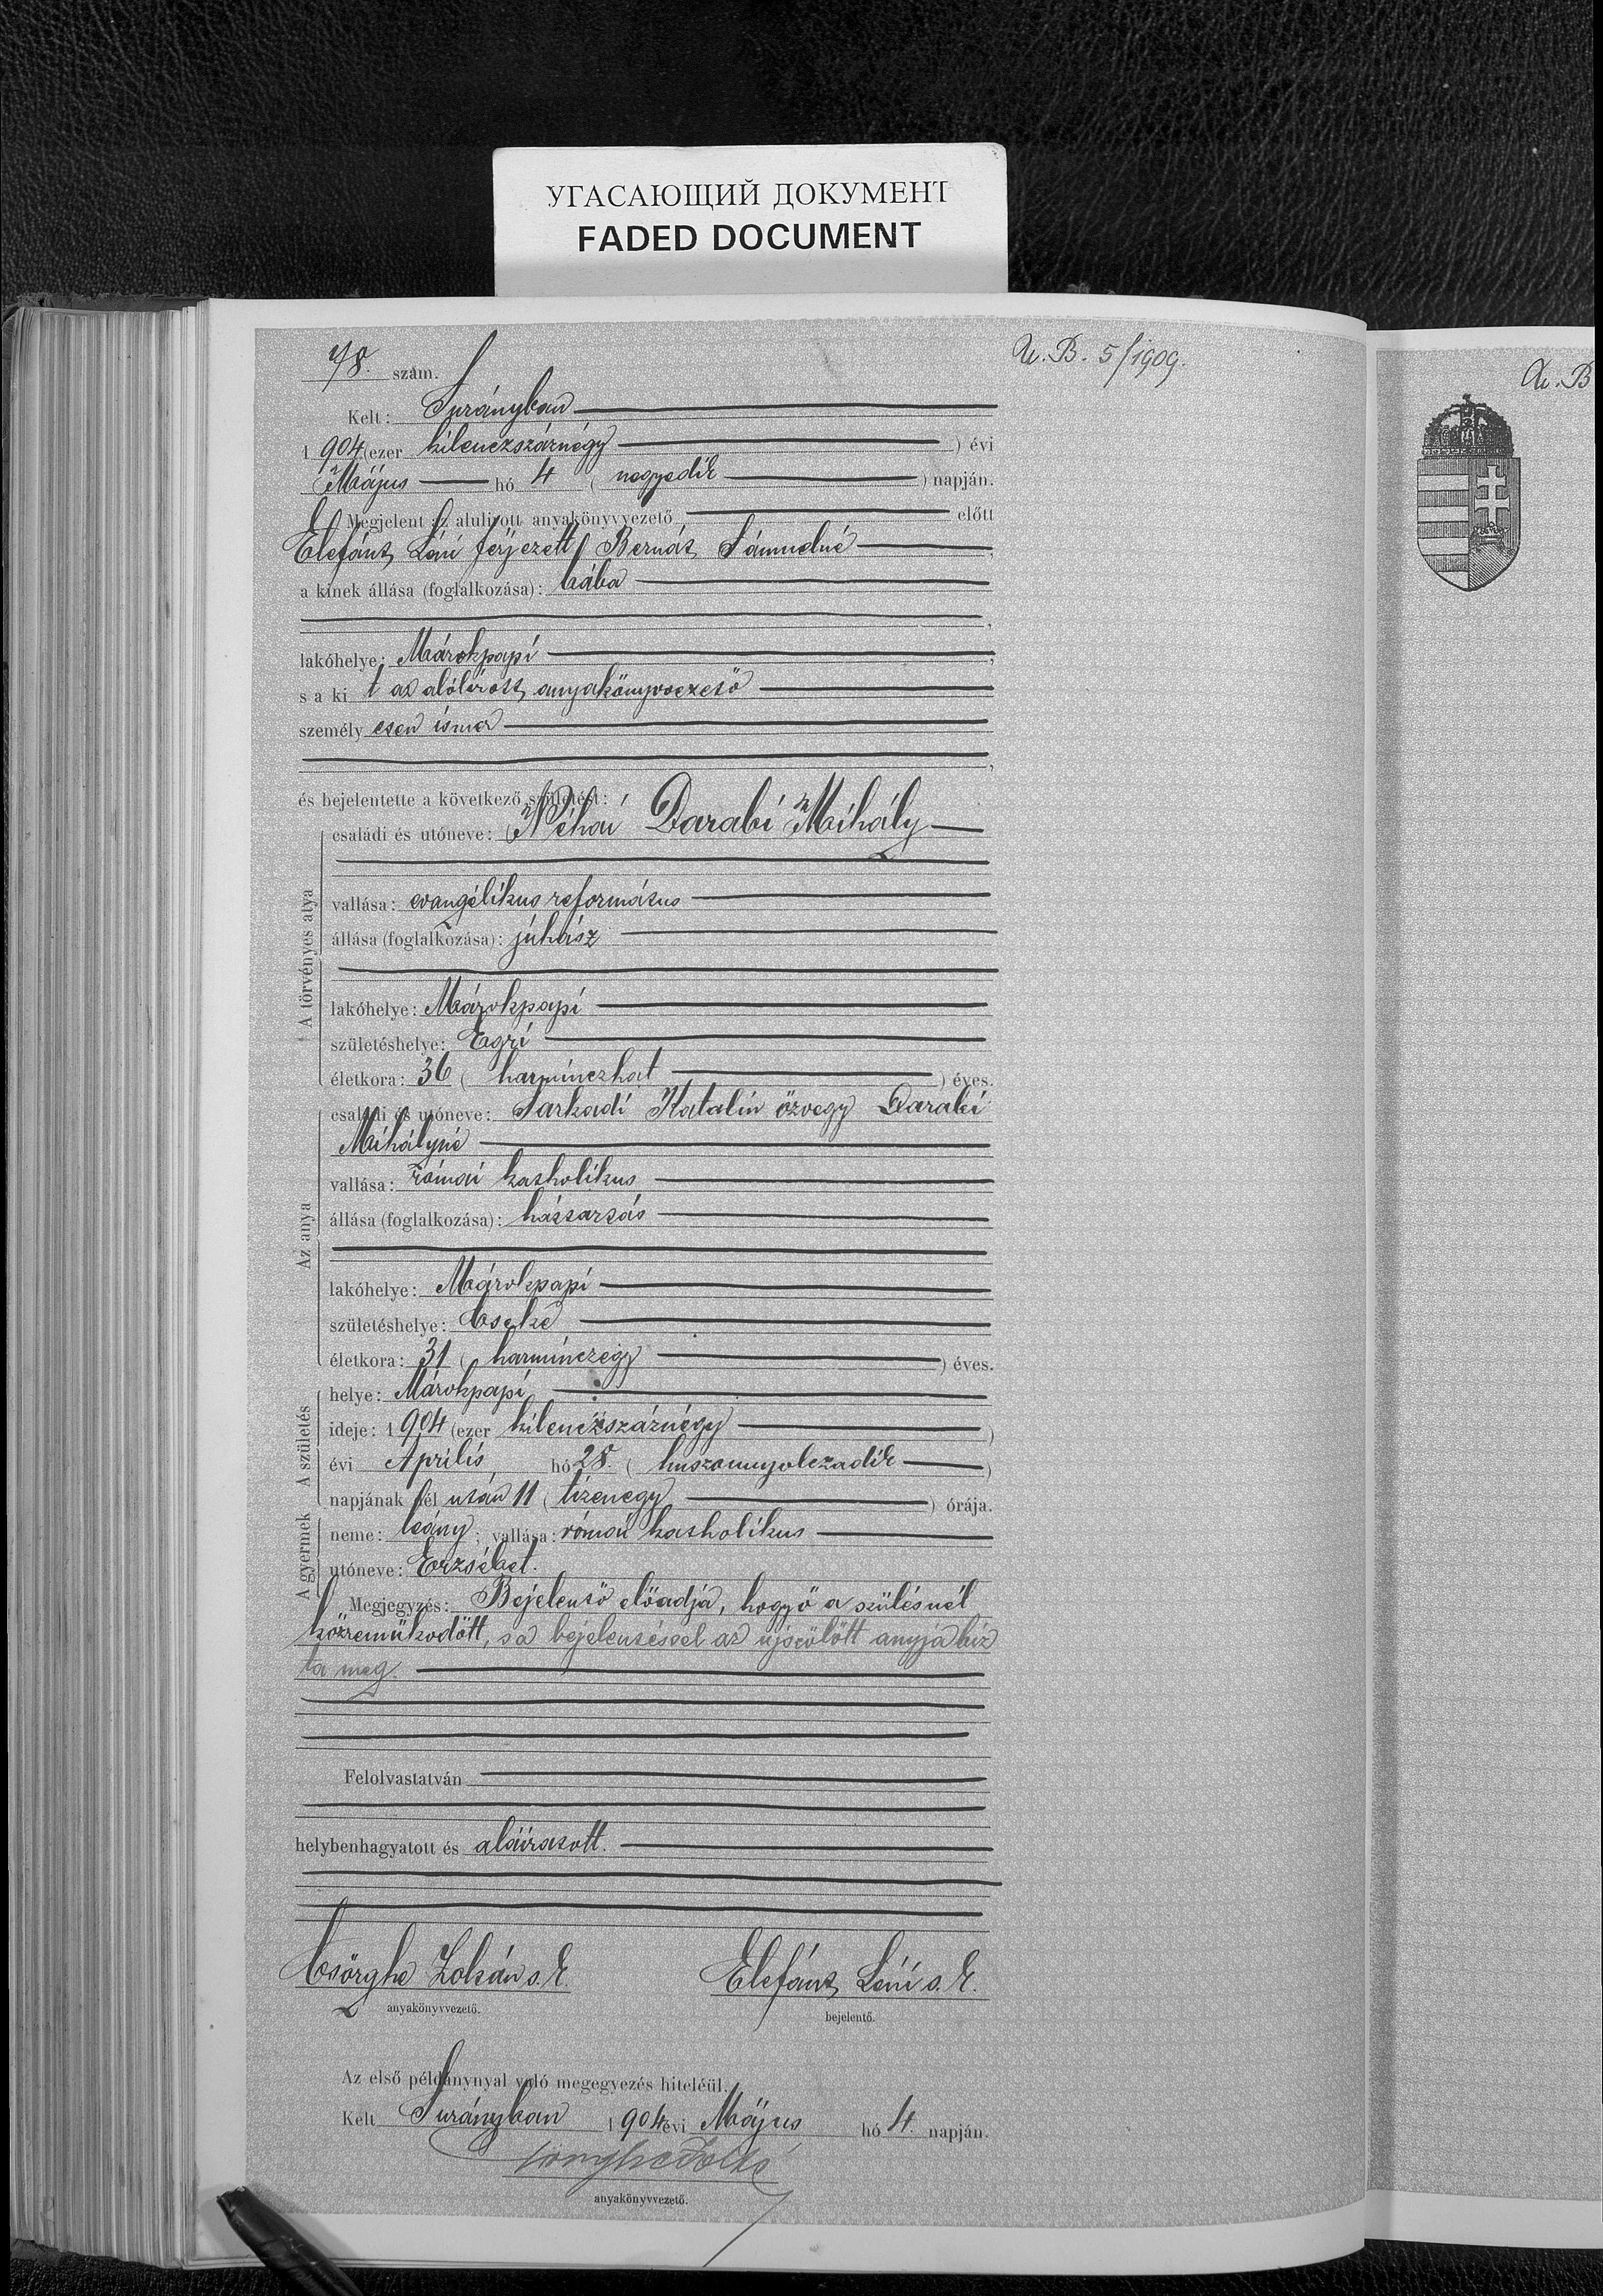 УГАСАЮЩИЙ ДОКУМЕНТ
FADED DOCUMENT
78. szám.
U. B. 5/1909.
U. B
Kelt: Surányban
1904 (ezer kilenczszáznégy) évi
Május hó 4 (negyedik) napján.
Megjelent az alulírott anyakönyvvezető előtt
Elefánt Láni férjezett Bernát Sámuelné,
a kinek állása (foglalkozása): bába
,
lakóhelye: Márokpapi,
s a ki t az alólírott anyakönyvvezető
személy esen ismer
,
és bejelentette a következő születést:
A törvényes atya
családi és utóneve: Néhai Darabi Mihály
vallása: evangélikus református
állása (foglalkozása): júhász
lakóhelye: Márokpapi
születéshelye: Egri
életkora: 36 (harminczhat) éves.
Az anya
családi és utóneve: Sarkadi Katalin özvegy Darabi
Mihályné
vallása: római katholikus
állása (foglalkozása): háztartás
lakóhelye: Márokpapi
születéshelye: Cseke
életkora: 31 (harminczegy) éves.
A születés
helye: Márokpapi
ideje: 1904 (ezer kilenczszáznégy)
évi Április hó 28. (huszonnyolczadik)
napjának dél után 11 (tizenegy) órája.
A gyermek
neme: leány; vallása: római katholikus
utóneve: Erzsébet.
Megjegyzés: Bejelentő előadja, hogy ő a szülésnél
közremüködött, s a bejelentéssel az újszülött anyja bíz
ta meg.
Felolvastatván
helybenhagyatott és aláíratott.
Csörghe Zoltán s. k.
anyakönyvvezető.
Elefánt Láni s. k.
bejelentő.
Az első példánynyal való megegyezés hiteléül.
Kelt Surányban 1904 évi Május hó 4. napján.
anyakönyvvezető.